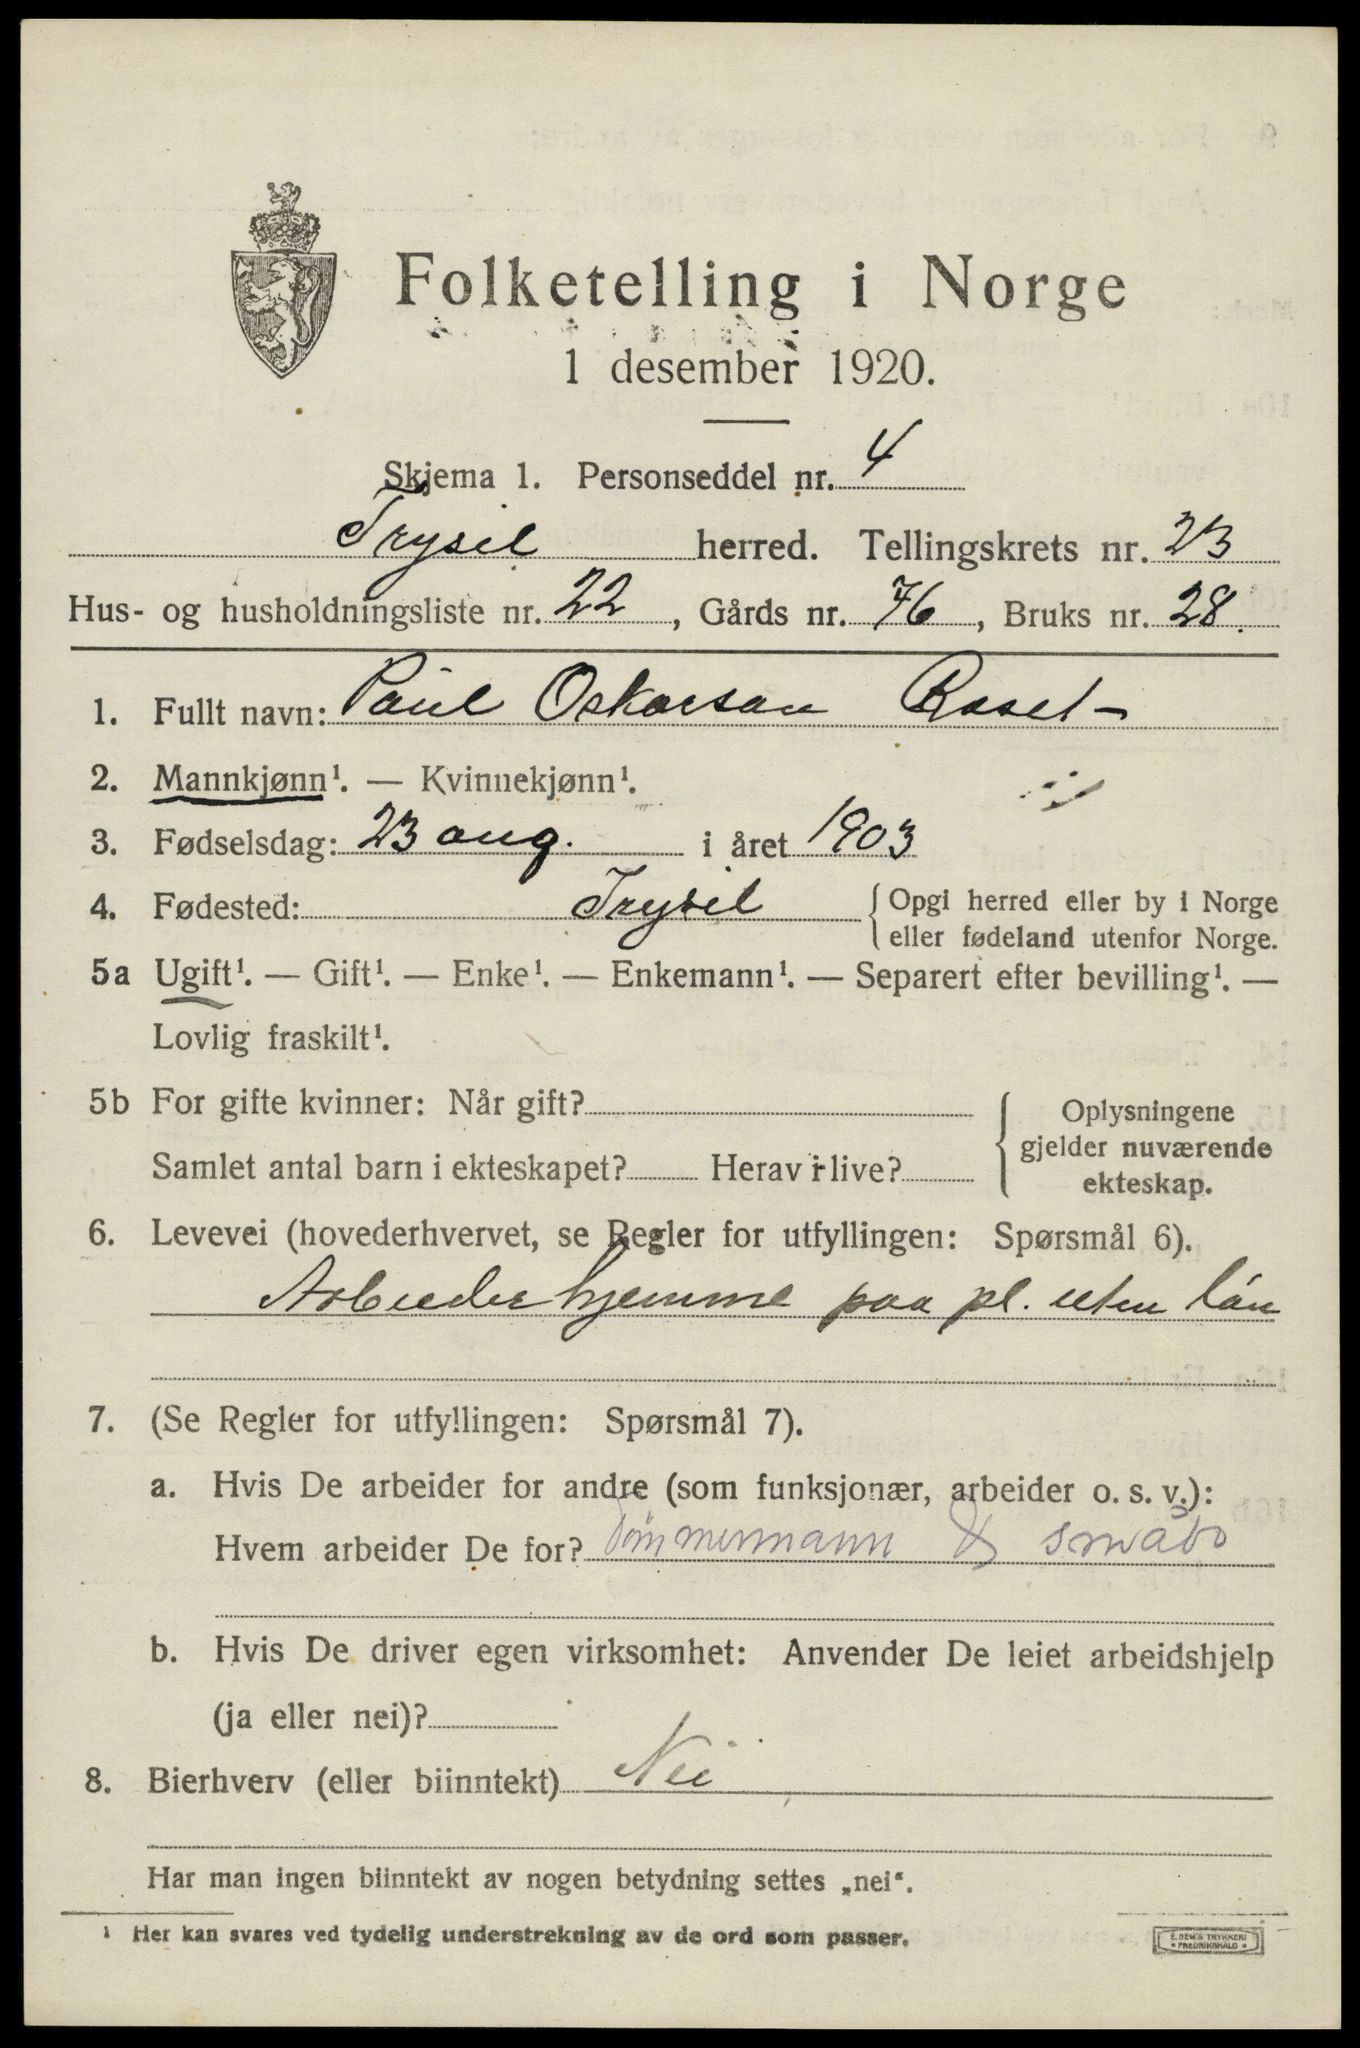 Folketelling i Norge
1 desember 1920.
Skjema 1. Personseddel nr. 4
Trysil herred. Tellingskrets nr. 23
Hus- og husholdningsliste nr. 22, Gårds nr. 76, Bruks nr. 28.
1. Fullt navn: Paul Oskarsen
2. Mannkjønn¹. — Kvinnekjønn¹.
3. Fødselsdag: 23 aug. i året 1903
4. Fødested: Trysil { Opgi herred eller by i Norge
eller fødeland utenfor Norge.
5a Ugift¹. — Gift¹. — Enke¹. — Enkemann¹. — Separert efter bevilling¹. —
Lovlig fraskilt¹.
5b For gifte kvinner: Når gift?
Samlet antal barn i ekteskapet? Herav i live?
{ Oplysningene
gjelder nuværende
ekteskap.
6. Levevei (hovederhvervet, se Regler for utfyllingen: Spørsmål 6).
Arbeider hjemme paa pl. uten løn
7. (Se Regler for utfyllingen: Spørsmål 7).
a. Hvis De arbeider for andre (som funksjonær, arbeider o. s. v.):
Hvem arbeider De for? Tømmermann & småbr
b. Hvis De driver egen virksomhet: Anvender De leiet arbeidshjelp
(ja eller nei)?
8. Bierhverv (eller biinntekt) Nei
Har man ingen biinntekt av nogen betydning settes „nei“.
¹ Her kan svares ved tydelig understrekning av de ord som passer.
E. SEM'S TRYKKERI
FREDRIKSHALD